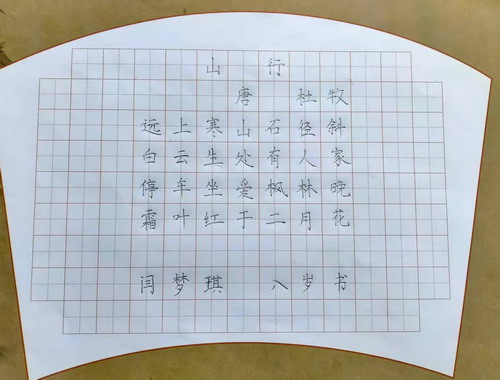 山行
唐 杜牧
远上寒山石径斜
白云生处有人家
停车坐爱枫林晚
霜叶红于二月花
闫梦琪 八岁书